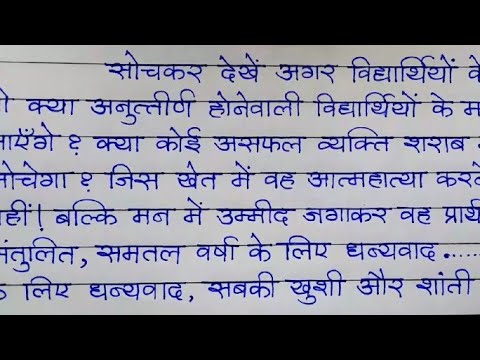 सोचकर देखें अगर विद्यार्थियों के
क्या अनुत्तीर्ण होनेवाली विद्यार्थियों के म
जाएँगे ? क्या कोई असफल व्यक्ति शराब
सोचेगा ? जिस खेत में वह आत्महात्या करके
नहीं! बल्कि मन में उम्मीद जगाकर वह प्रार्थ
संतुलित, समतल वर्षा के लिए धन्यवाद.....
के लिए धन्यवाद, सबकी खुशी और शांती